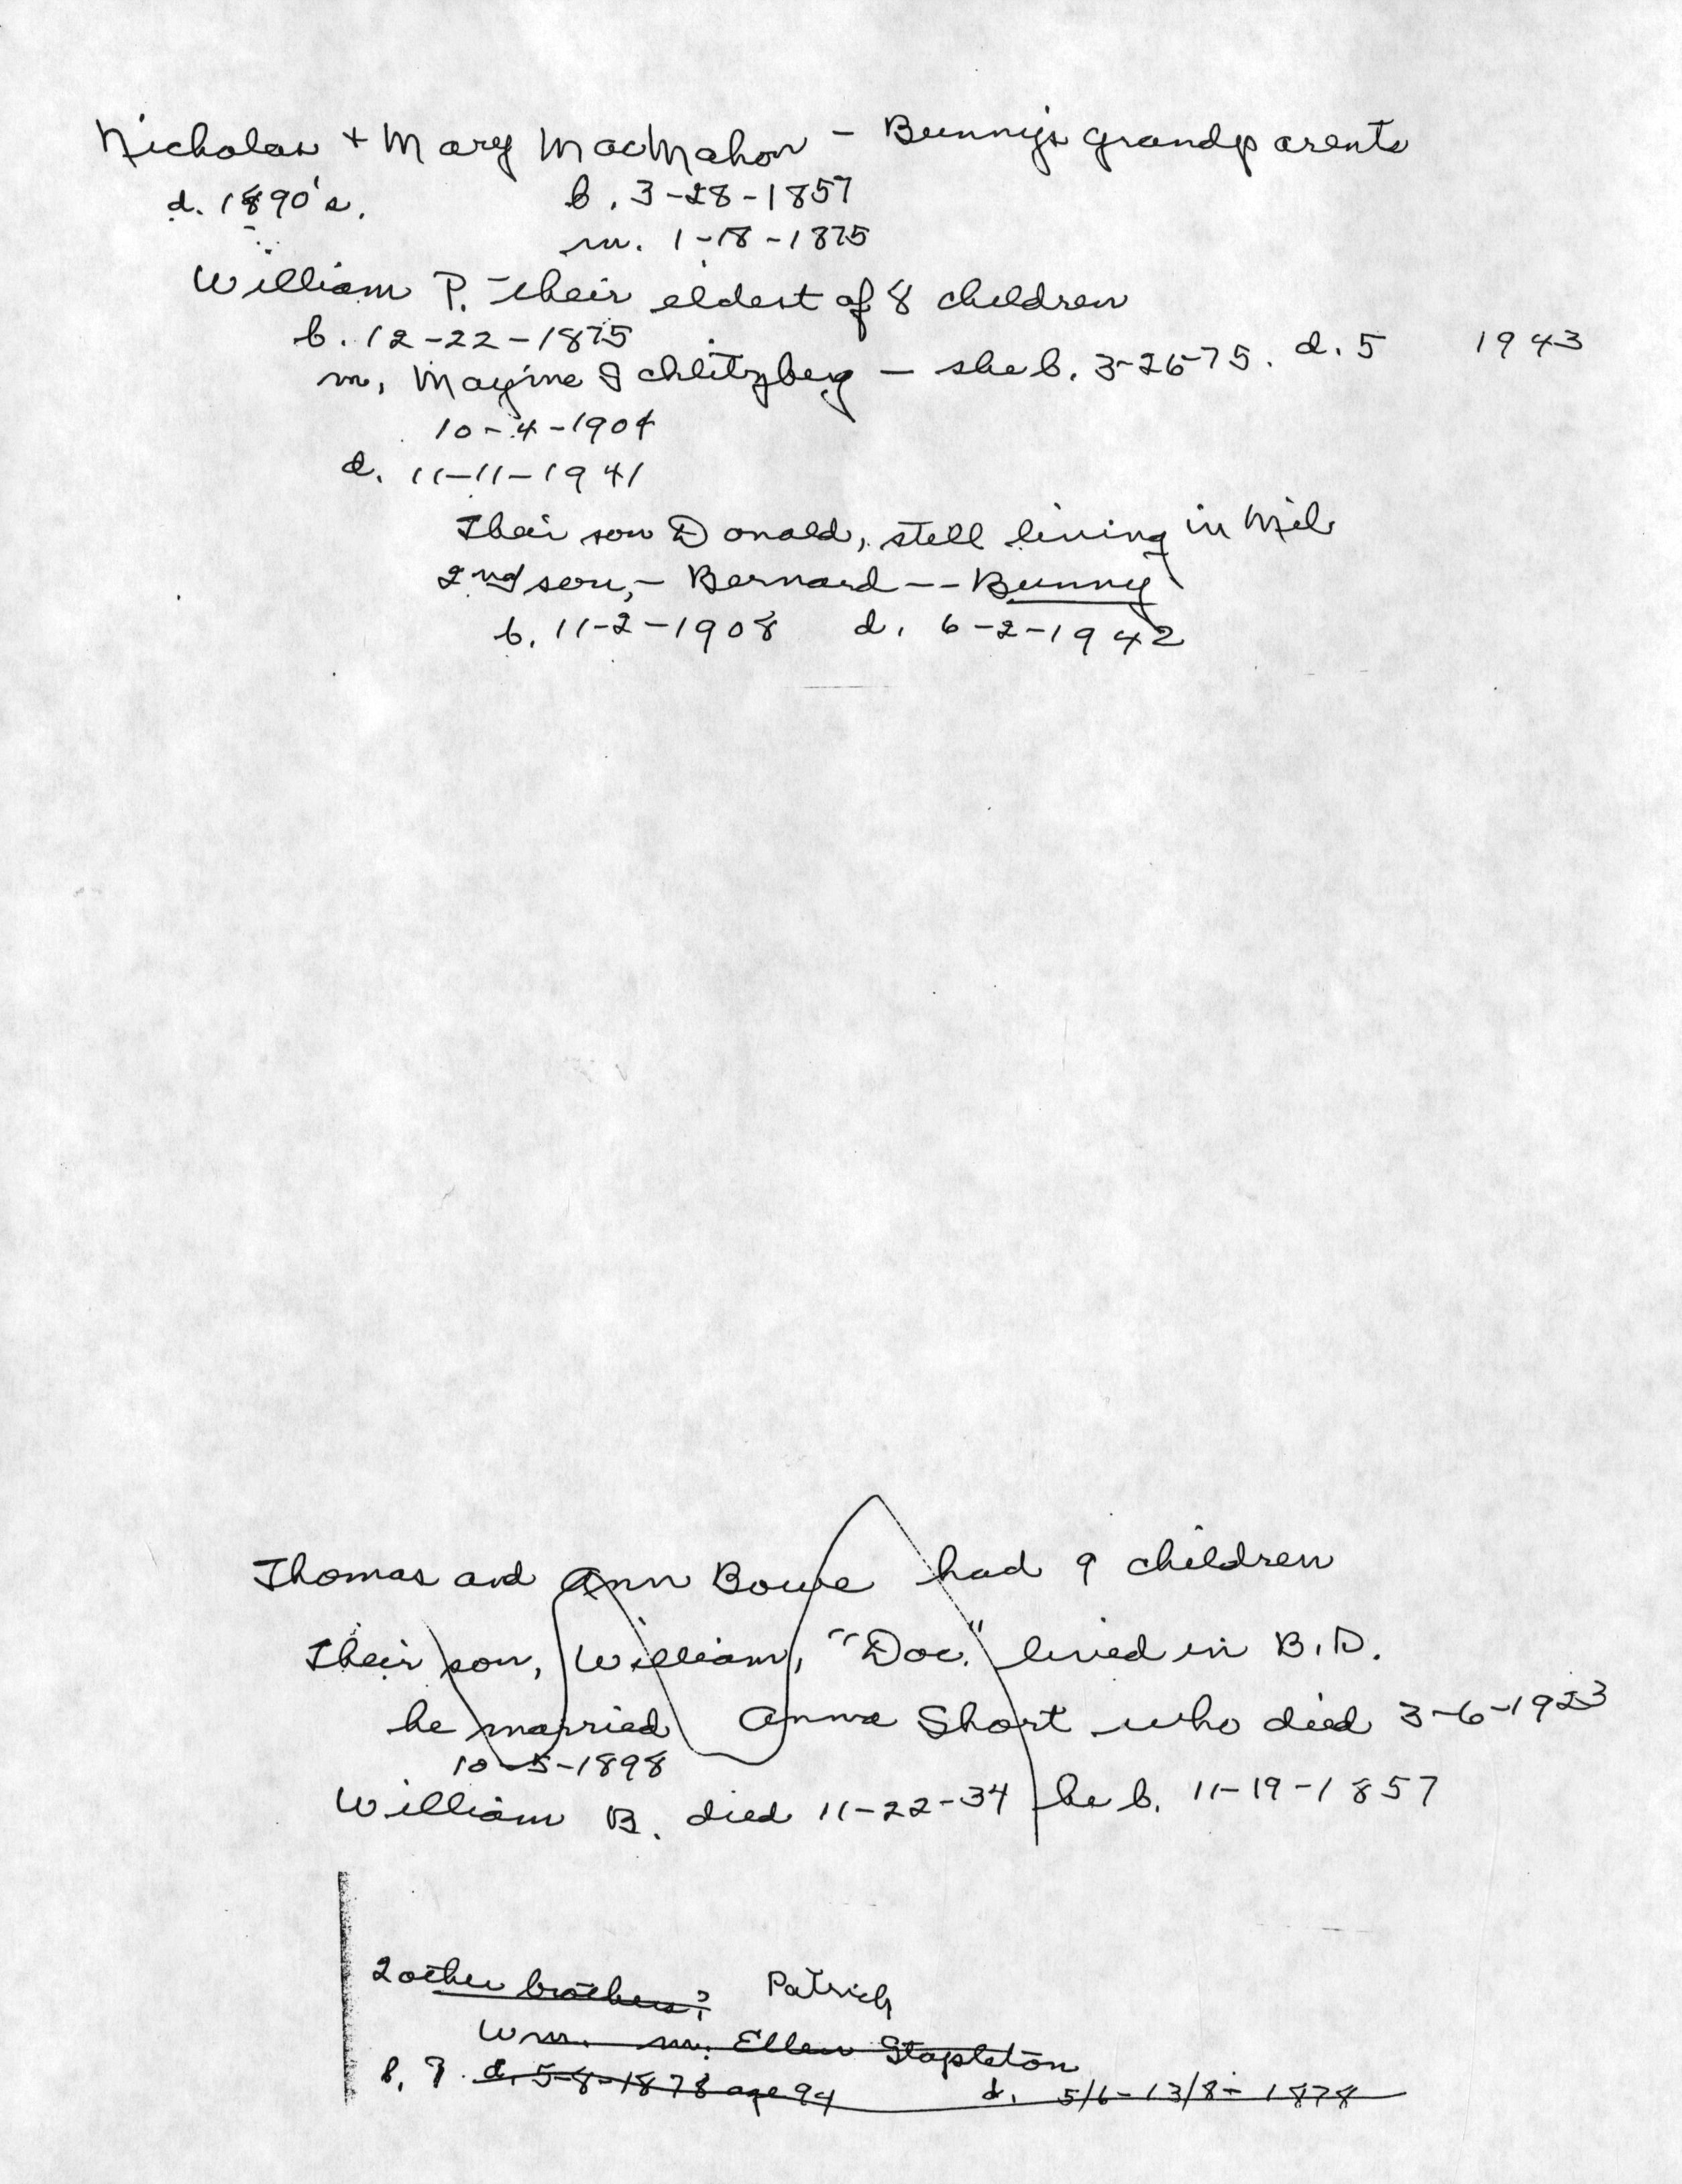 Nicholas + Mary MacMahon - Bunny's grandparents
d. 1890's. b. 3-28-1857
m. 1-18-1875
William P. - their eldest of 8 children
b. 12-22-1875
m. Mayme Schlitzberg - she b. 3-26-75. d. 5 1943
10-4-1904
d. 11-11-1941
Their son Donald, still living in Mil
2nd son, - Bernard -- Bunny
b. 11-2-1908 d. 6-2-1942
Thomas and Ann Bowe had 9 children
Their son, William, "Doc." lived in B.D.
he married Anna Short who died 3-6-1923
10-5-1898
William B. died 11-22-34 he b. 11-19-1857
2 other brothers? Patrick
Wm. m. Ellen Stapleton
b. ? d. 5-8-1878 age 94 d. 5/6-13/8- 1878